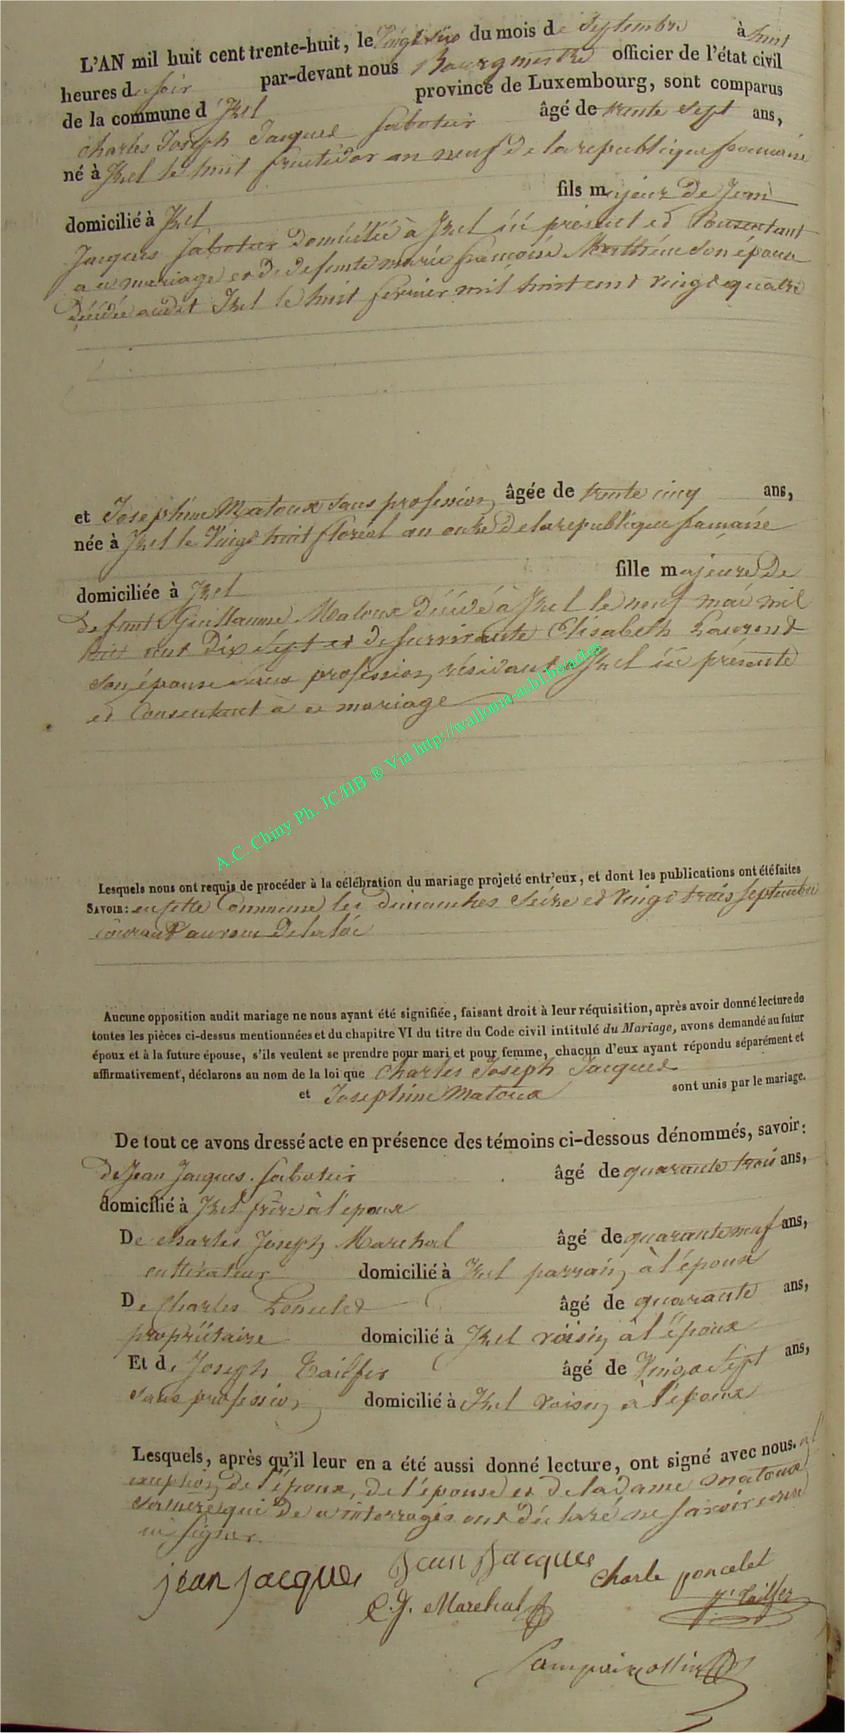 L'AN mil huit cent trente-huit, le Vingt six du mois de Septembre à huit
heures du soir par-devant nous Bourgmestre officier de l'état civil
de la commune d'Izel province de Luxembourg, sont comparus
charles Joseph Jacques Sabotier âgé de trente sept ans,
né à Izel le huit fructidor an neuf de la republique francaise
domicilié à Izel fils majeur de Jean
Jacques Sabotier domicilié à Izel ici présent et Consentant
a ce mariage et de defunte marie francoise son épouse
décédée audit Izel le huit fevrier mil huit cent vingt quatre
et Josephine Matoux sans profession, âgée de trente cinq ans,
née à Izel le Vingt huit floréal an onze de la republique francaise
domiciliée à Izel fille majeure De
defunt Guillaume Matoux décédé à Izel le neuf mai mil
huit cent Dix Sept et de Survivante Elisabeth Laurent
Son épouse sans profession, résidant à Izel ici présente
et Consentant à ce mariage
A.C. Chiny Ph. JC/HB ® Via http://wallonia-asbl.be
Lesquels nous ont requis de procéder à la célébration du mariage projeté entr'eux, et dont les publications ont été faites
SAVOIR: en cette Commune les dimanches Seize et Vingt trois Septembre
courant au vœu de la loi
Aucune opposition audit mariage ne nous ayant été signifiée, faisant droit à leur réquisition, après avoir donné lecture de
toutes les pièces ci-dessus mentionnées et du chapitre VI du titre du Code civil intitulé du Mariage, avons demandé au futur
époux et à la future épouse, s'ils veulent se prendre pour mari et pour femme, chacun d'eux ayant répondu séparément et
affirmativement, déclarons au nom de la loi que Charles Joseph Jacques
et Josephine Matoux sont unis par le mariage.
De tout ce avons dressé acte en présence des témoins ci-dessous dénommés, savoir:
de Jean Jacques Sabotier âgé de quarante trois ans,
domicilié à Izel frère à l'époux
De charles Joseph Marechal âgé de quarante neuf ans,
cultivateur domicilié à Izel parrain à l'époux
De Charles Poncelet âgé de quarante ans,
propriétaire domicilié à Izel voisin à l'époux
Et de Joseph Tailfer âgé de Vingt Sept ans,
sans profession, domicilié à Izel voisin à l'époux
Lesquels, après qu'il leur en a été aussi donné lecture, ont signé avec nous. à l'
exception de l'époux, de l'épouse et de la dame matoux
sa mère qui de ce interrogés ont déclaré ne savoir écrire
ni signer.
jean jacques Jean Jacques Charle poncelet
C. J. Marechal Tailfer